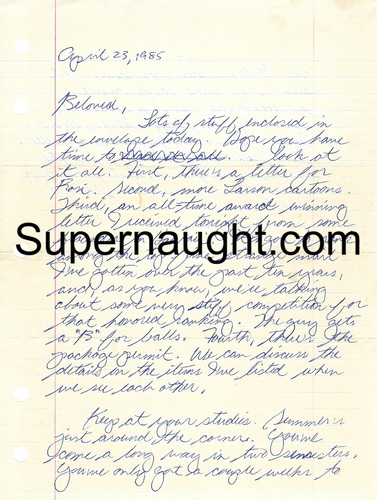 April 23, 1985
Beloved,
Lots of stuff enclosed in
the envelope today. Hope you have
time to look at
it all. First, there's a letter for
Fox. Second, more Larson cartoons.
Third, an all-time award winning
letter I received tonight from some
Supernaught.com
among the top strange mail
I've gotten over the past ten years,
and, as you know, we're talking
about some very stiff competition for
that honored ranking. The guy gets
a "B" for balls. Fourth, there's the
package permit. We can discuss the
details on the items I've listed when
we see each other.
Keep at your studies. Summer's
just around the corner. You've
come a long way in two semesters.
You've only got a couple weeks to